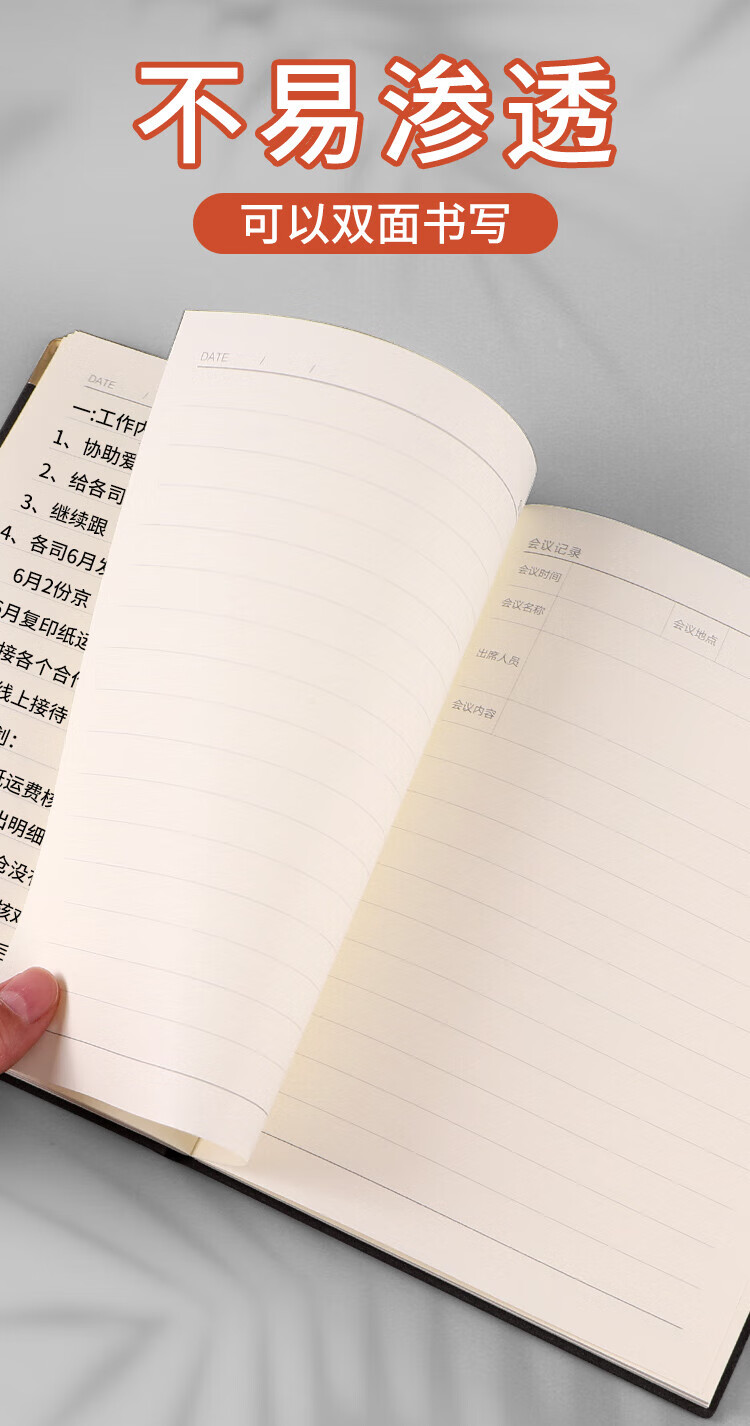 不易渗透
可以双面书写
DATE / /
DATE /
一:工作内
1、协助爱
2、给各司
3、继续跟
4、各司6月发
6月2份京
6月复印纸运
接各个合作
线上接待
划:
纸运费核
出明细
仓没有
核对
会议记录
会议时间
会议名称
会议地点
出席人员
会议内容